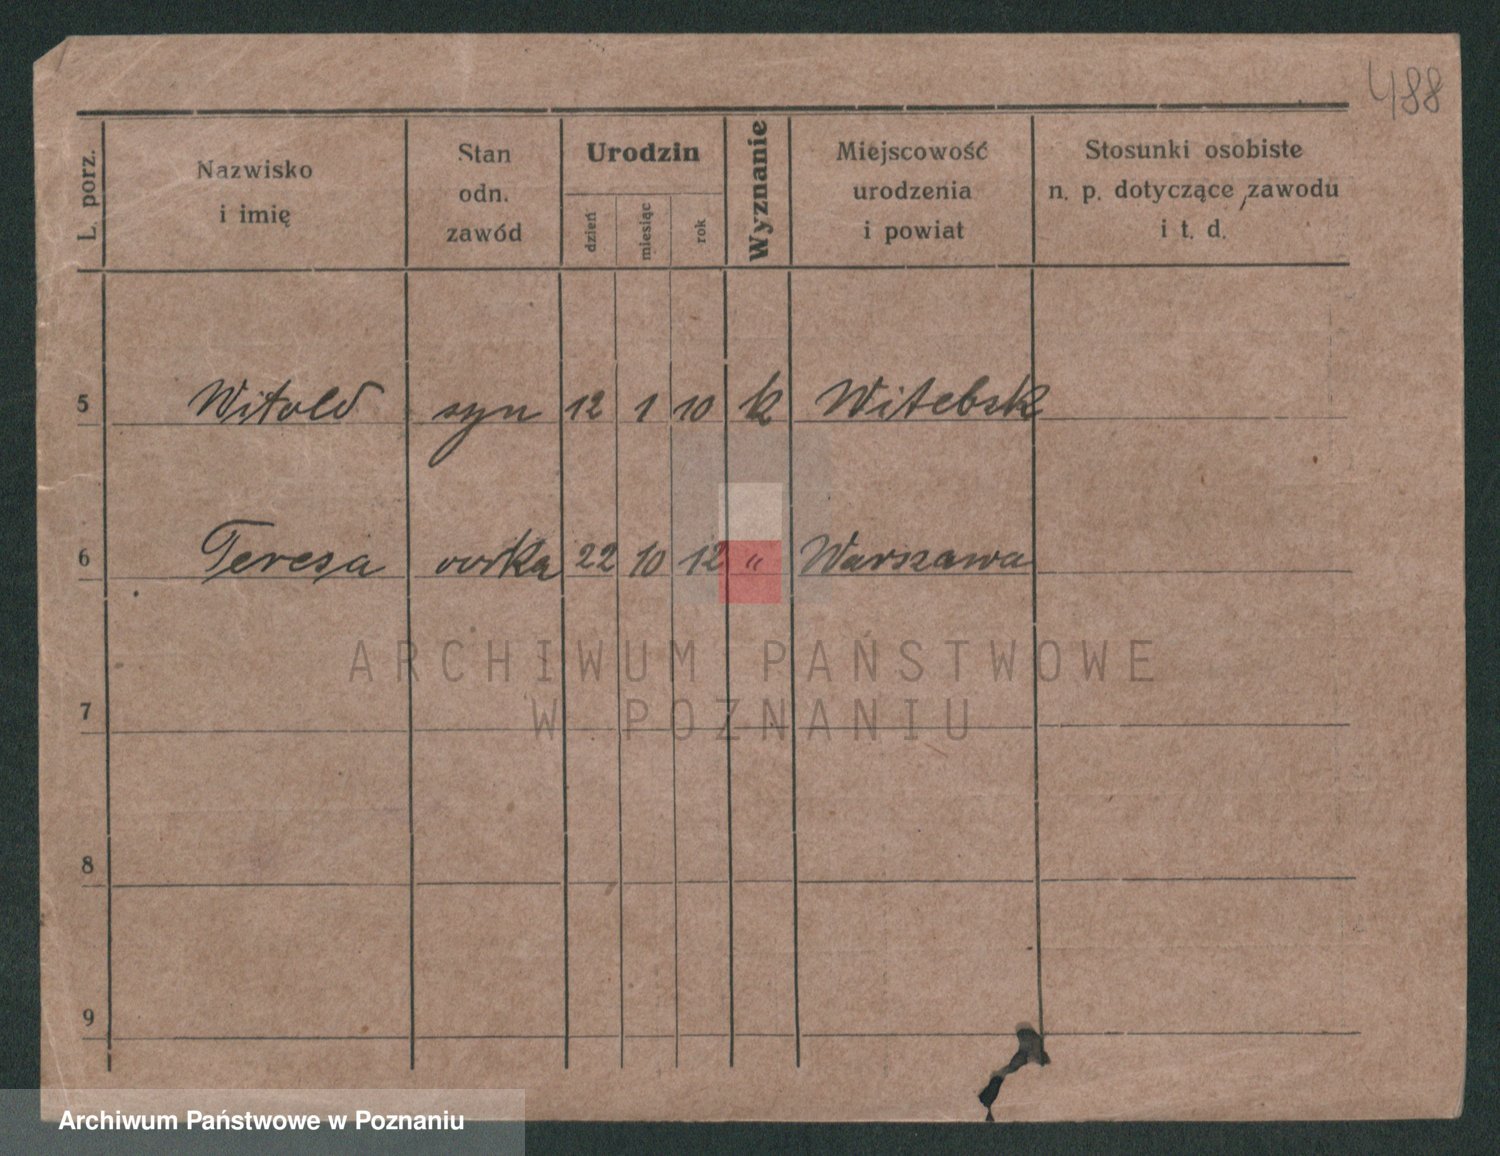 488
L. porz.
Nazwisko
i imię
Stan
odn.
zawód
Urodzin
dzień
miesiąc
rok
Wyznanie
Miejscowość
urodzenia
i powiat
Stosunki osobiste
n. p. dotyczące zawodu
i t. d.
5 Witold syn 12 1 10 k Witebsk
6 Teresa córka 22 10 12 " Warszawa
ARCHIWUM PAŃSTWOWE
W POZNANIU
7
8
9
Archiwum Państwowe w Poznaniu